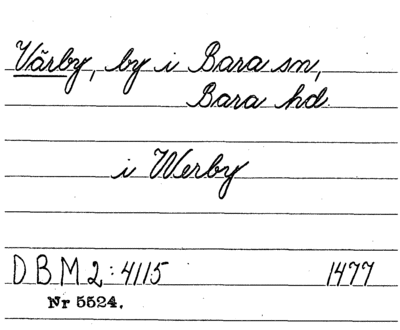 Värby, by i Bara sn,
Bara hd.
i Werby
DBM 2:4115 1477
Nr 5524.